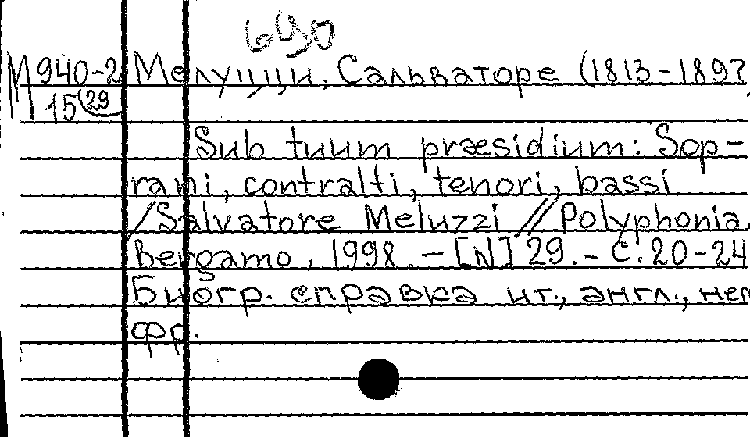 690
М940-2 Мелуцци, Сальваторе (1813-1897
15(29
Sub tuum præsidium: Sop-
rani, contralti, tenori, bassi
/Salvatore Meluzzi // Polyphonia.
Bergamo, 1998. - [N] 29. - С. 20-24
Биогр. справка ит., англ., нем
фр.